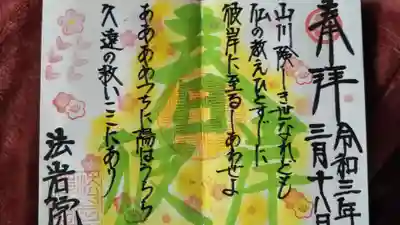 奉拝
令和三年
三月十八日
山川険しきせなれども
仏の教えひとすじに
彼岸に至るしあわせよ
春彼岸
ああああつちに陽はうらら
久遠の救いここにあり
法岩院